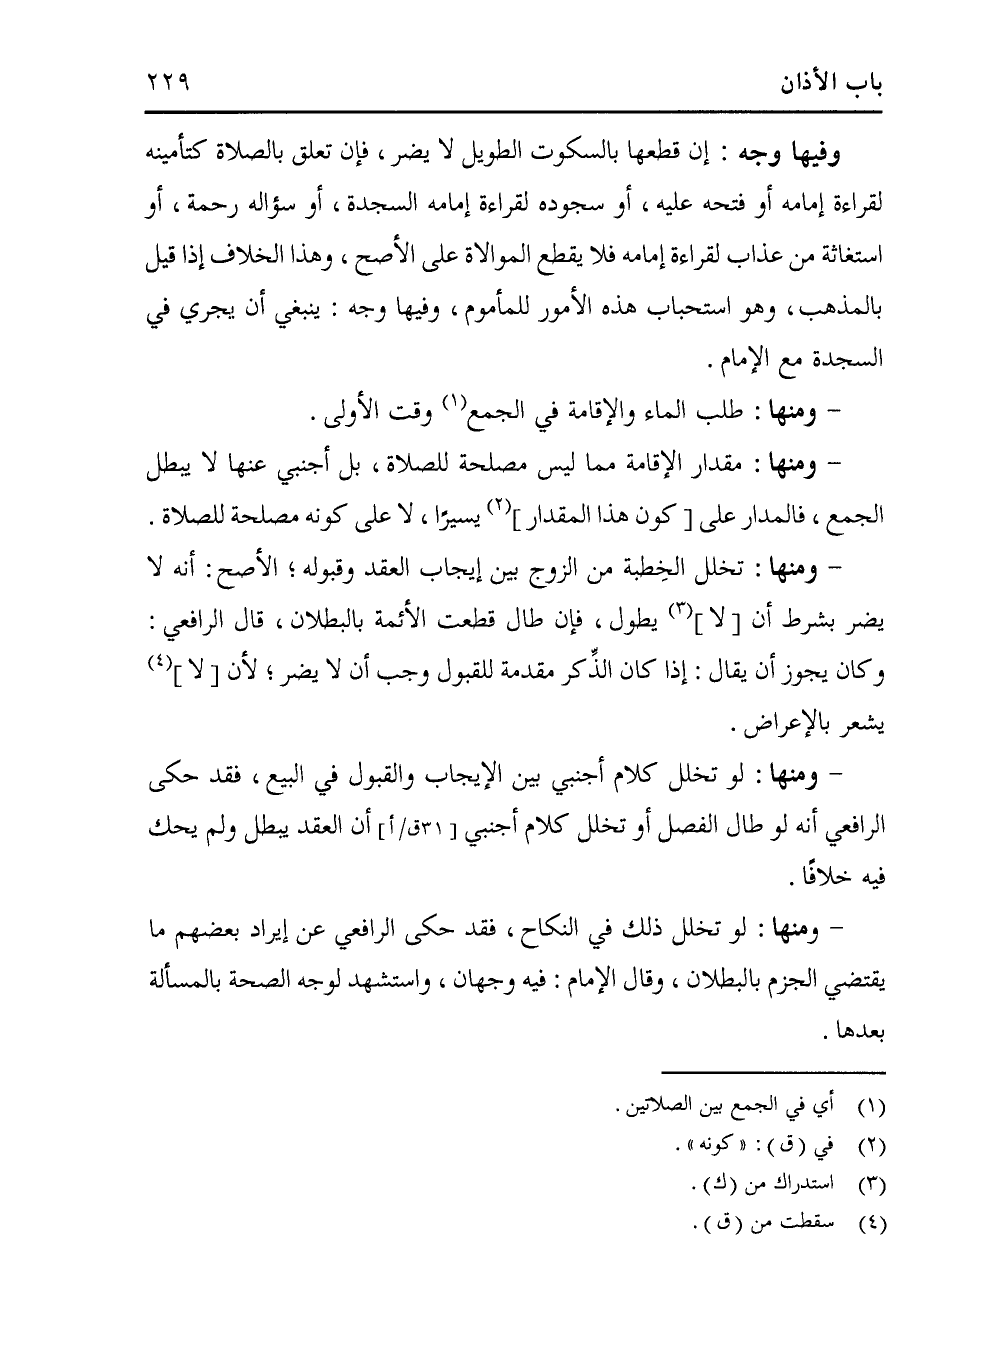 باب الأذان ٢٢٩
وفيها وجه : إن قطعها بالسكوت الطويل لا يضر ، فإن تعلق بالصلاة كتأمينه
لقراءة إمامه أو فتحه عليه ، أو سجوده لقراءة إمامه السجدة ، أو سؤاله رحمة ، أو
استغاثة من عذاب لقراءة إمامه فلا يقطع الموالاة على الأصح ، وهذا الخلاف إذا قيل
بالمذهب ، وهو استحباب هذه الأمور للمأموم ، وفيها وجه : ينبغي أن يجري في
السجدة مع الإمام .
- ومنها : طلب الماء والإقامة في الجمع(١) وقت الأولى .
- ومنها : مقدار الإقامة مما ليس مصلحة للصلاة ، بل أجنبي عنها لا يبطل
الجمع ، فالمدار على [ كون هذا المقدار ](٢) يسيرًا ، لا على كونه مصلحة للصلاة .
- ومنها : تخلل الخِطبة من الزوج بين إيجاب العقد وقبوله ؛ الأصح : أنه لا
يضر بشرط أن [ لا ](٣) يطول ، فإن طال قطعت الأئمة بالبطلان ، قال الرافعي :
وكان يجوز أن يقال : إذا كان الذِّكر مقدمة للقبول وجب أن لا يضر ؛ لأن [ لا ](٤)
يشعر بالإعراض .
- ومنها : لو تخلل كلام أجنبي بين الإيجاب والقبول في البيع ، فقد حكى
الرافعي أنه لو طال الفصل أو تخلل كلام أجنبي [ ٣١ق/أ] أن العقد يبطل ولم يحك
فيه خلافًا .
- ومنها : لو تخلل ذلك في النكاح ، فقد حكى الرافعي عن إيراد بعضهم ما
يقتضي الجزم بالبطلان ، وقال الإمام : فيه وجهان ، واستشهد لوجه الصحة بالمسألة
بعدها .
(١) أي في الجمع بين الصلاتين .
(٢) في (ق) : « كونه » .
(٣) استدراك من (ك) .
(٤) سقطت من (ق) .